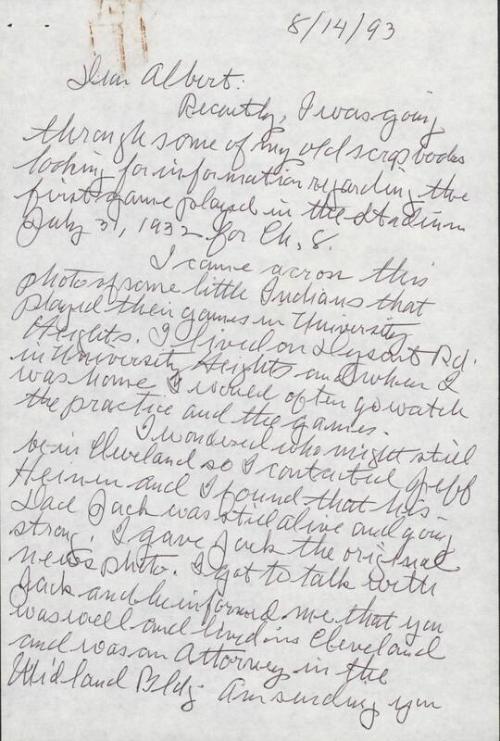 8/14/93
Dear Albert:
Recently, I was going
through some of my old scrapbooks
looking for information regarding the
first game played in the Stadium
July 31, 1932 for Ch. 8.
I came across this
photo of some little Indians that
played their games in University
Heights. I lived on Dysart Rd.
in University Heights and when I
was home I would often go watch
the practice and the games.
I wondered who might still
be in Cleveland so I contacted Jeff
Heinen and I found that his
Dad Jack was still alive and going
strong. I gave Jack the original
news photo. I got to talk with
Jack and he informed me that you
was well and lived in Cleveland
and was an Attorney in the
Midland Bldg. Am sending you